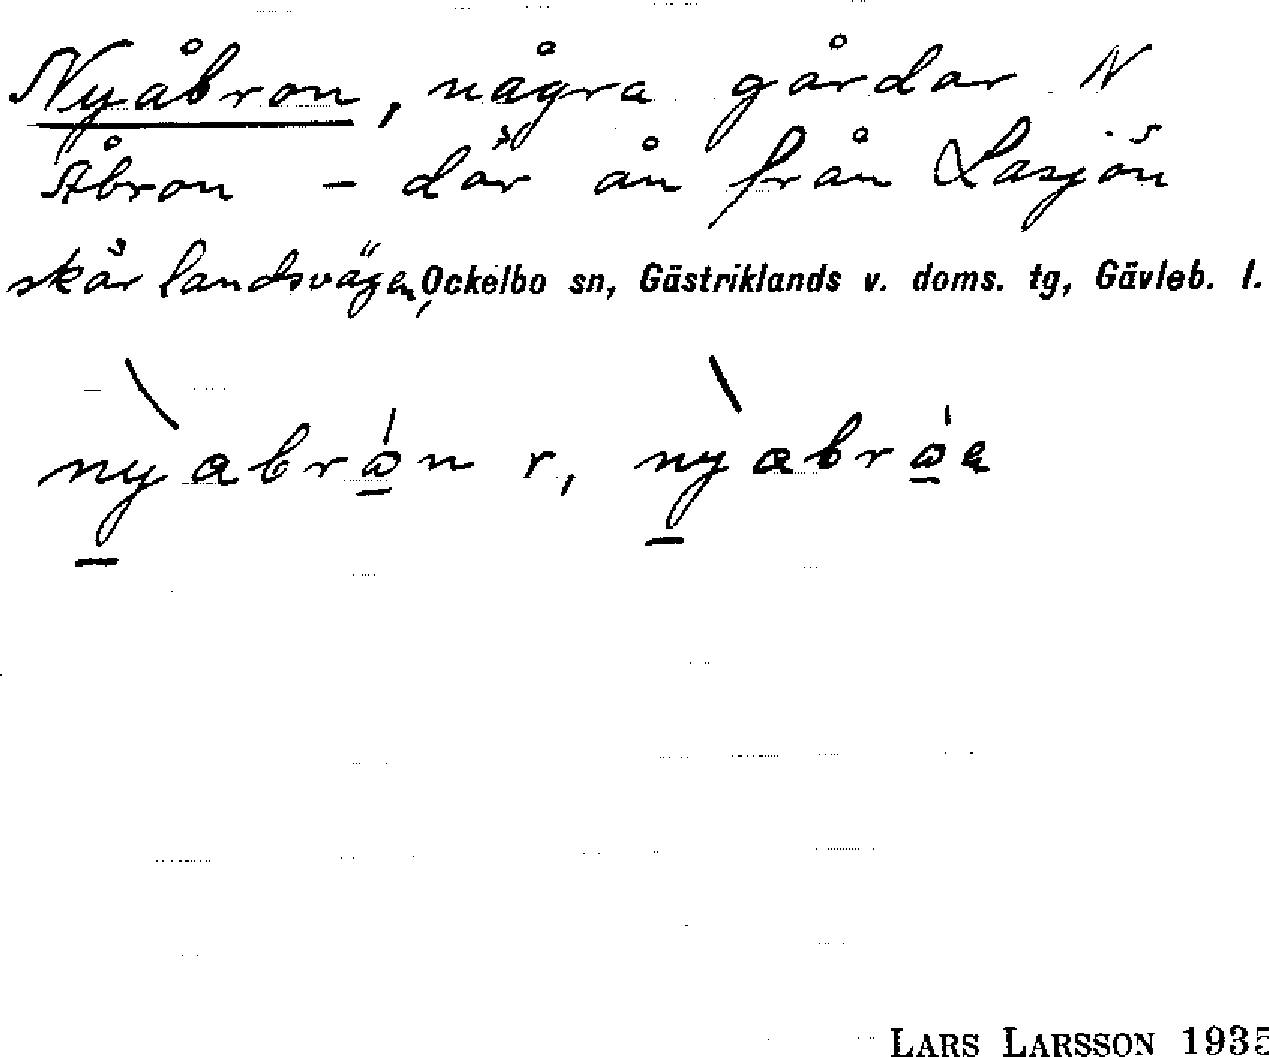 Nyåbron, några gårdar N
Åbron – där ån från Lasjön
skär landsvägen, Ockelbo sn, Gästriklands v. doms. tg, Gävleb. l.
nyabrån r, nyabråa
LARS LARSSON 1935